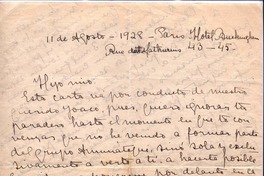 11 de Agosto - 1928 - Paris Hotel Buckingham
Rue des Mathurins 43-45.
Hijo mio.
Esta carta va por conducto de nuestro
querido Joaco, pues, quiero ignoras tu
paradero hasta el momento en que te con
venzas que no he venido a formar parte
del grupo sino sola y exclu
sivamente a verte a ti. a hacerte posible
por delante en el